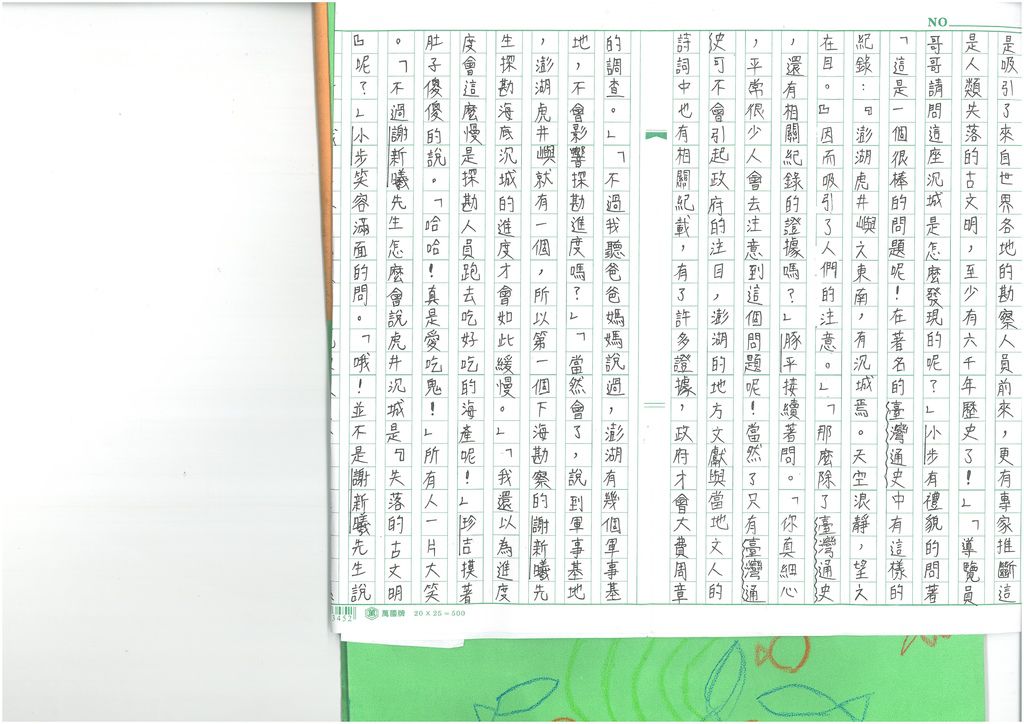 NO
是吸引了來自世界各地的勘察人員前來，更有專家推斷這
是人類失落的古文明，至少有六千年歷史了！」「導覽員
哥哥請問這座沉城是怎麼發現的呢？」小步有禮貌的問著
「這是一個很棒的問題呢！在著名的臺灣通史中有這樣的
紀錄：『澎湖虎井嶼之東南，有沉城焉。天空浪靜，望之
在目。』因而吸引了人們的注意。」「那麼除了臺灣通史
，還有相關紀錄的證據嗎？」豚平接續著問。「你真細心
，平常很少人會去注意到這個問題呢！當然了只有臺灣通
史可不會引起政府的注目，澎湖的地方文獻與當地文人的
詩詞中也有相關紀載，有了許多證據，政府才會大費周章
的調查。」「不過我聽爸爸媽媽說過，澎湖有幾個軍事基
地，不會影響探勘進度嗎？」「當然會了，說到軍事基地
，澎湖虎井嶼就有一個，所以第一個下海勘察的謝新曦先
生探勘海底沉城的進度才會如此緩慢。」「我還以為進度
度會這麼慢是探勘人員跑去吃好吃的海產呢！」珍吉摸著
肚子傻傻的說。「哈哈！真是愛吃鬼！」所有人一片大笑
。「不過謝新曦先生怎麼會說虎井沉城是『失落的古文明
』呢？」小步笑容滿面的問。「哦！並不是謝新曦先生說
3452 萬國牌 20×25=500